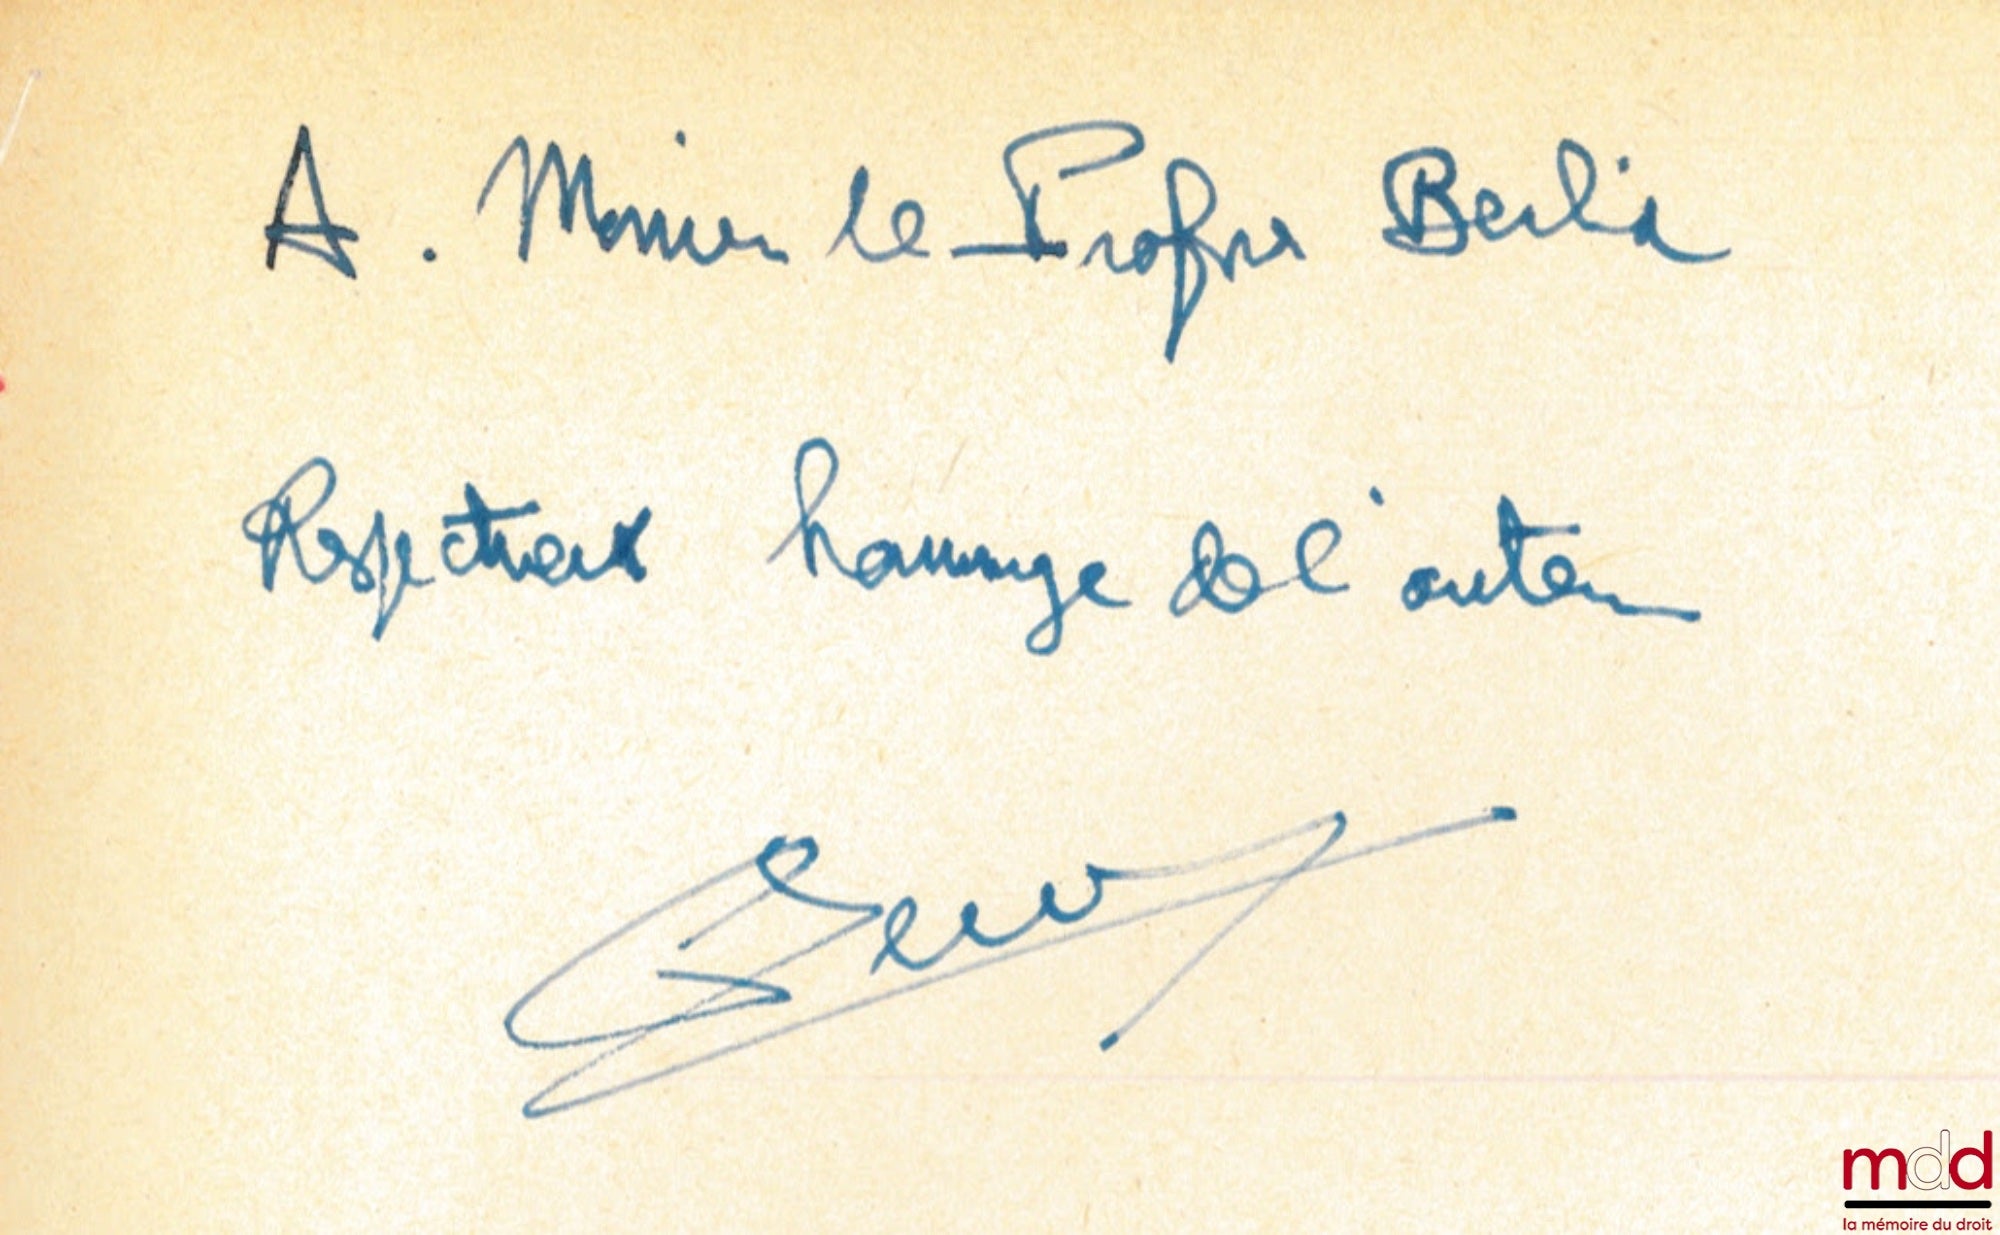 A. Monsieur le Professeur Berlia
Respectueux hommage de l'auteur
mdd
la mémoire du droit